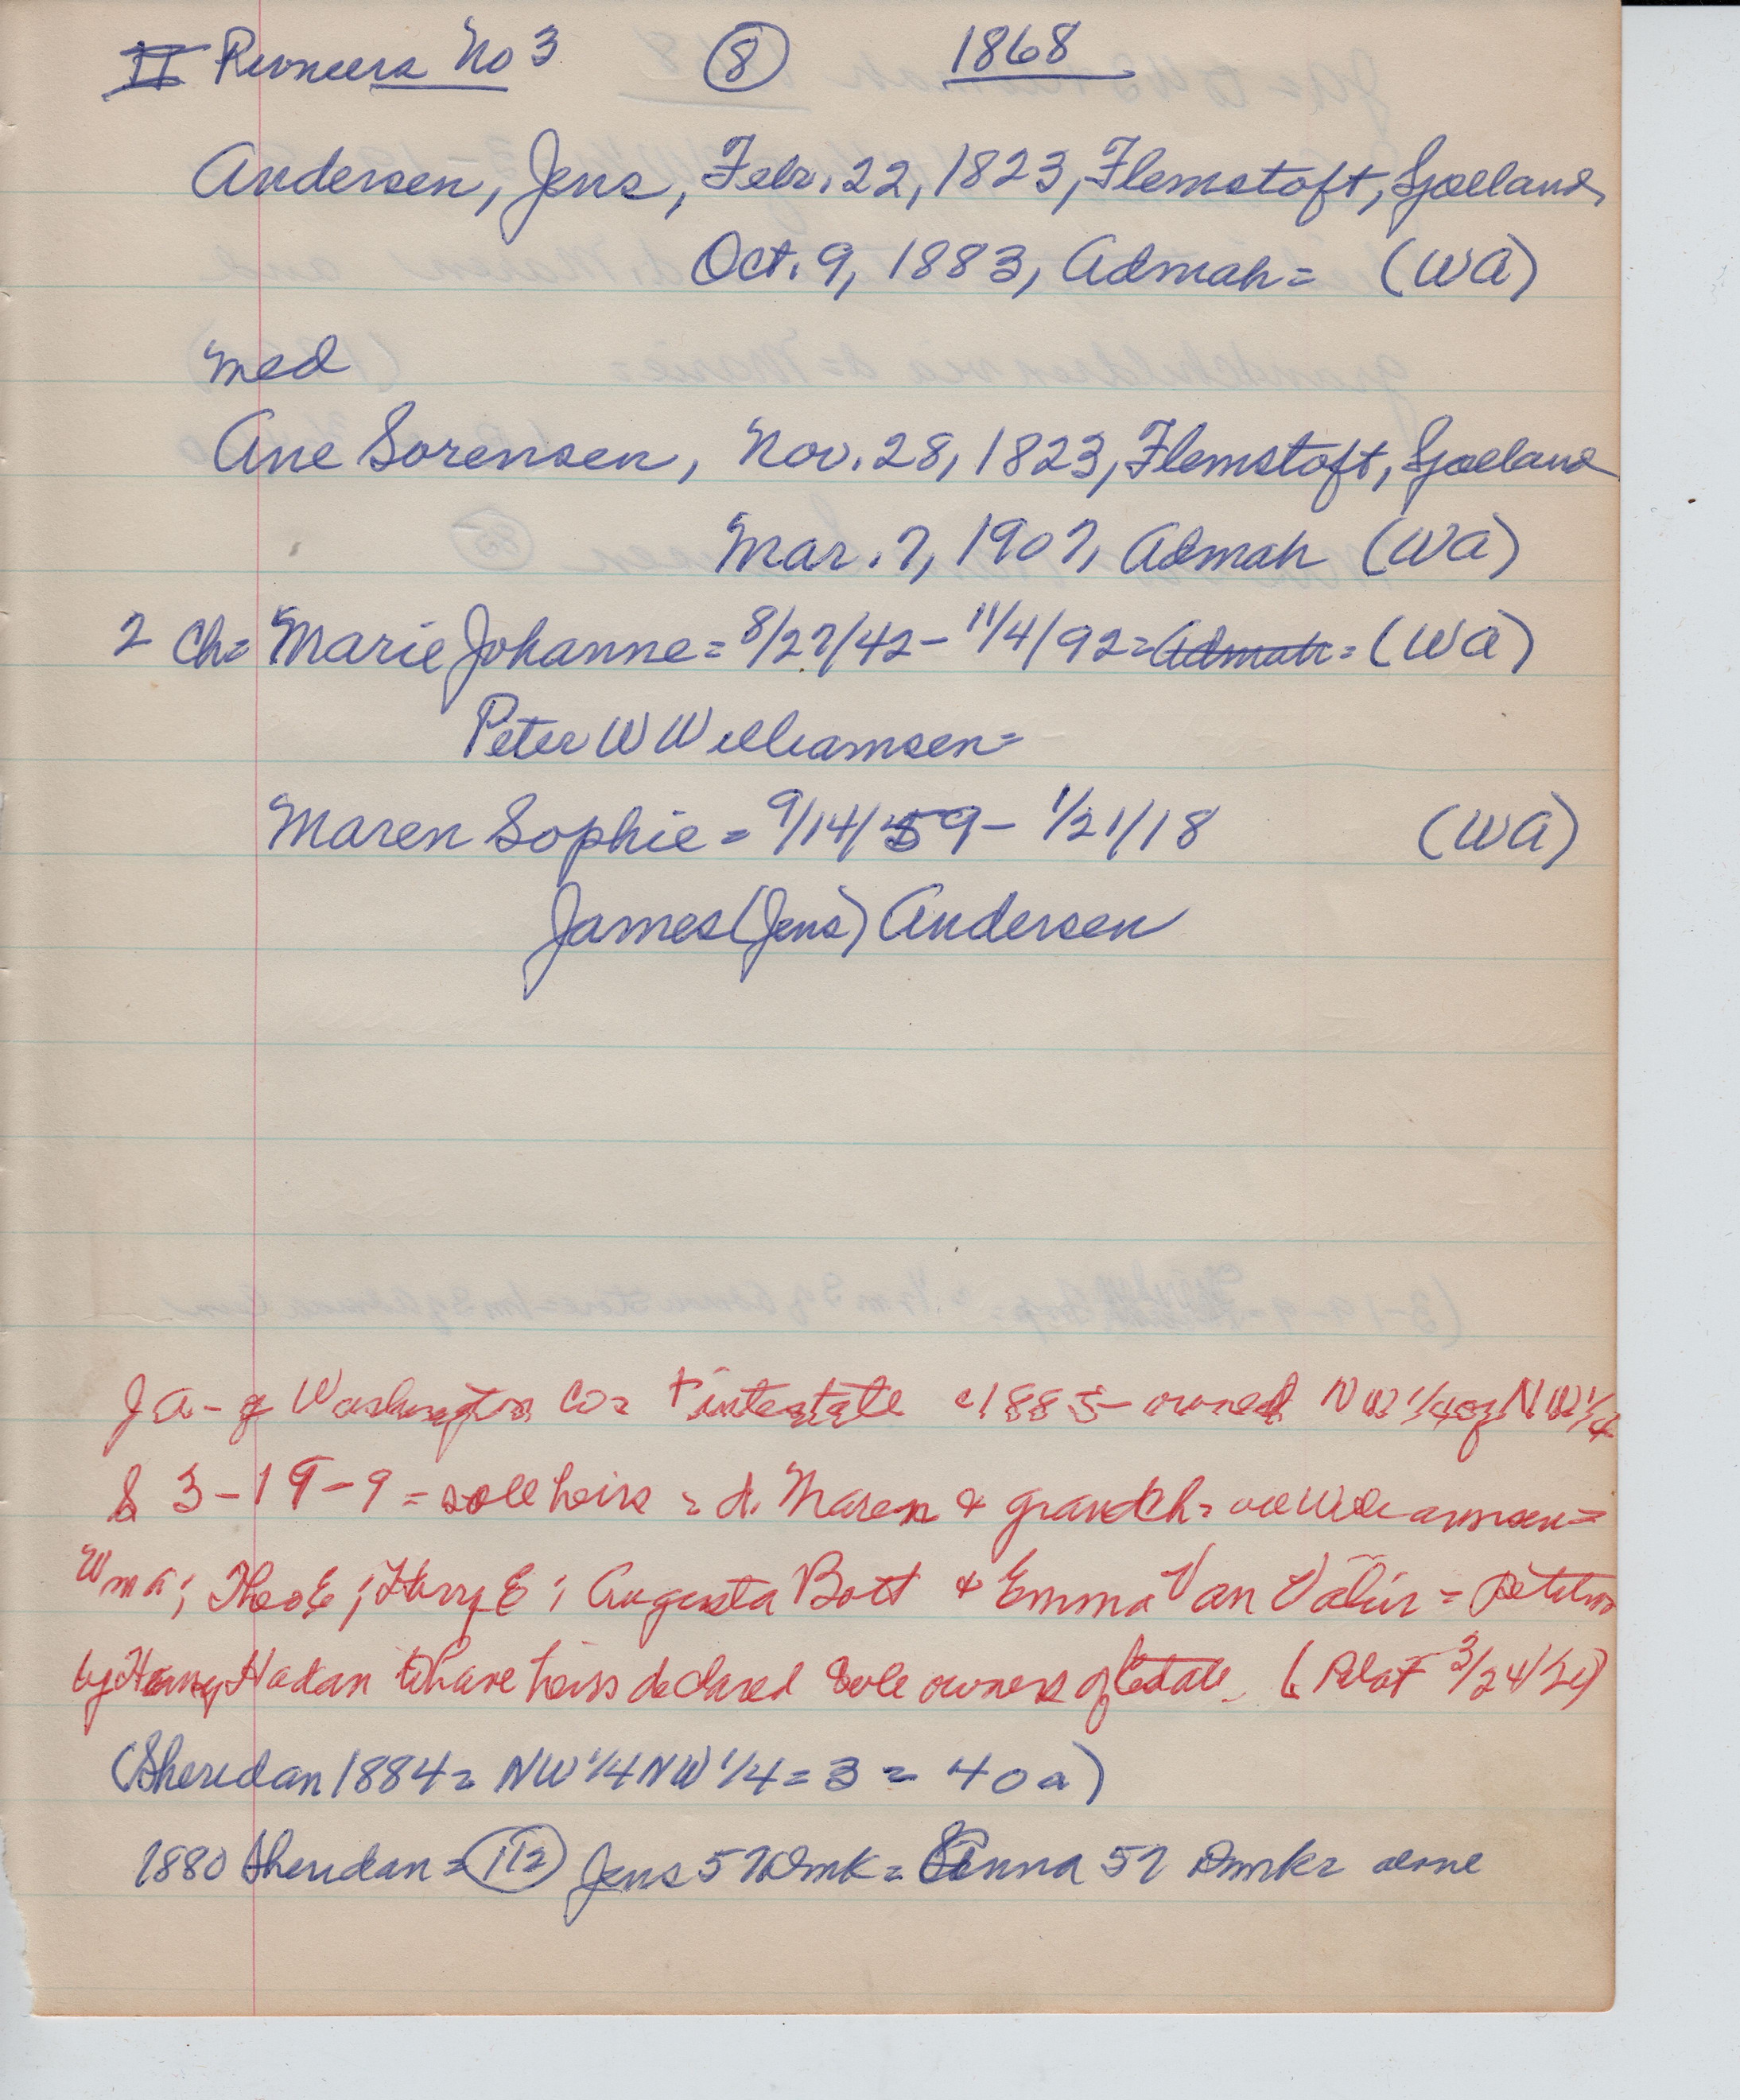 II Pioneers No 3 (8) 1868
Andersen, Jens, Febr. 22, 1823, Flemstoft, Sjaelland,
Oct. 9, 1883, Admah = (WA)
med
Ane Sorensen, Nov. 28, 1823, Flemstoft, Sjaelland
Mar. 7, 1907, Admah (WA)
2 Ch = Marie Johanne = 8/27/42 - 11/4/92 = Admah = (WA)
Peter W Williamsen =
Maren Sophie = 9/14/59 - 1/21/18 (WA)
James (Jens) Andersen
J A - of Washington Co = + intestate c 1883 - owned NW 1/4 of NW 1/4
S 3-19-9 = sole heirs = d. Maren & grandch =
Wm A; Theo E; Harry E; Augusta Bott & Emma Van =
by Hadan to have heirs declared sole owners of Estate (Pilot
(Sheridan 1884 = NW 1/4 NW 1/4 = 3 = 40 a)
1880 Sheridan = (112) Jens 57 Dmk = Anna 57 Dmk = alone